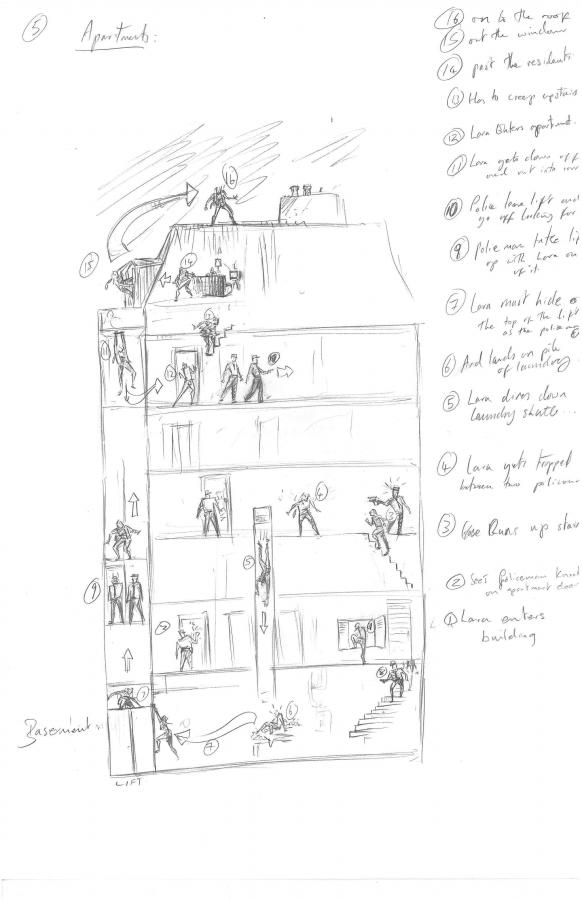 ⑤ Apartments:
⑯ on to the roof
⑮ out the window
⑭ past the residents
⑬ Has to creep upstairs
⑫ Lara Enters apartment.
⑪ Lara gets down off
and out into
⑩ Police leave lift and
go off looking for
⑨ Policeman take lift
up with Lara on
top of it.
⑦ Lara must hide on
the top of the lift
as the policeman
⑥ And lands on pile
of laundry
⑤ Lara dives down
laundry shuttle...
④ Lara gets trapped
between two policemen
③ Runs up stairs
② See's Policeman knock
on apartment door
① Lara enters
building
⑯
⑮
⑭
⑪
⑫
⑩
④
⑤
⑨
②
①
⑦
⑥
⑦
Basement
LIFT